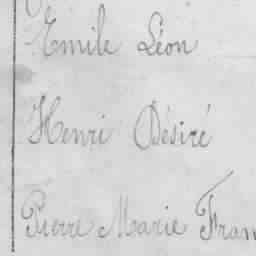 Emile Léon
Henri Désiré
Pierre Marie Fran